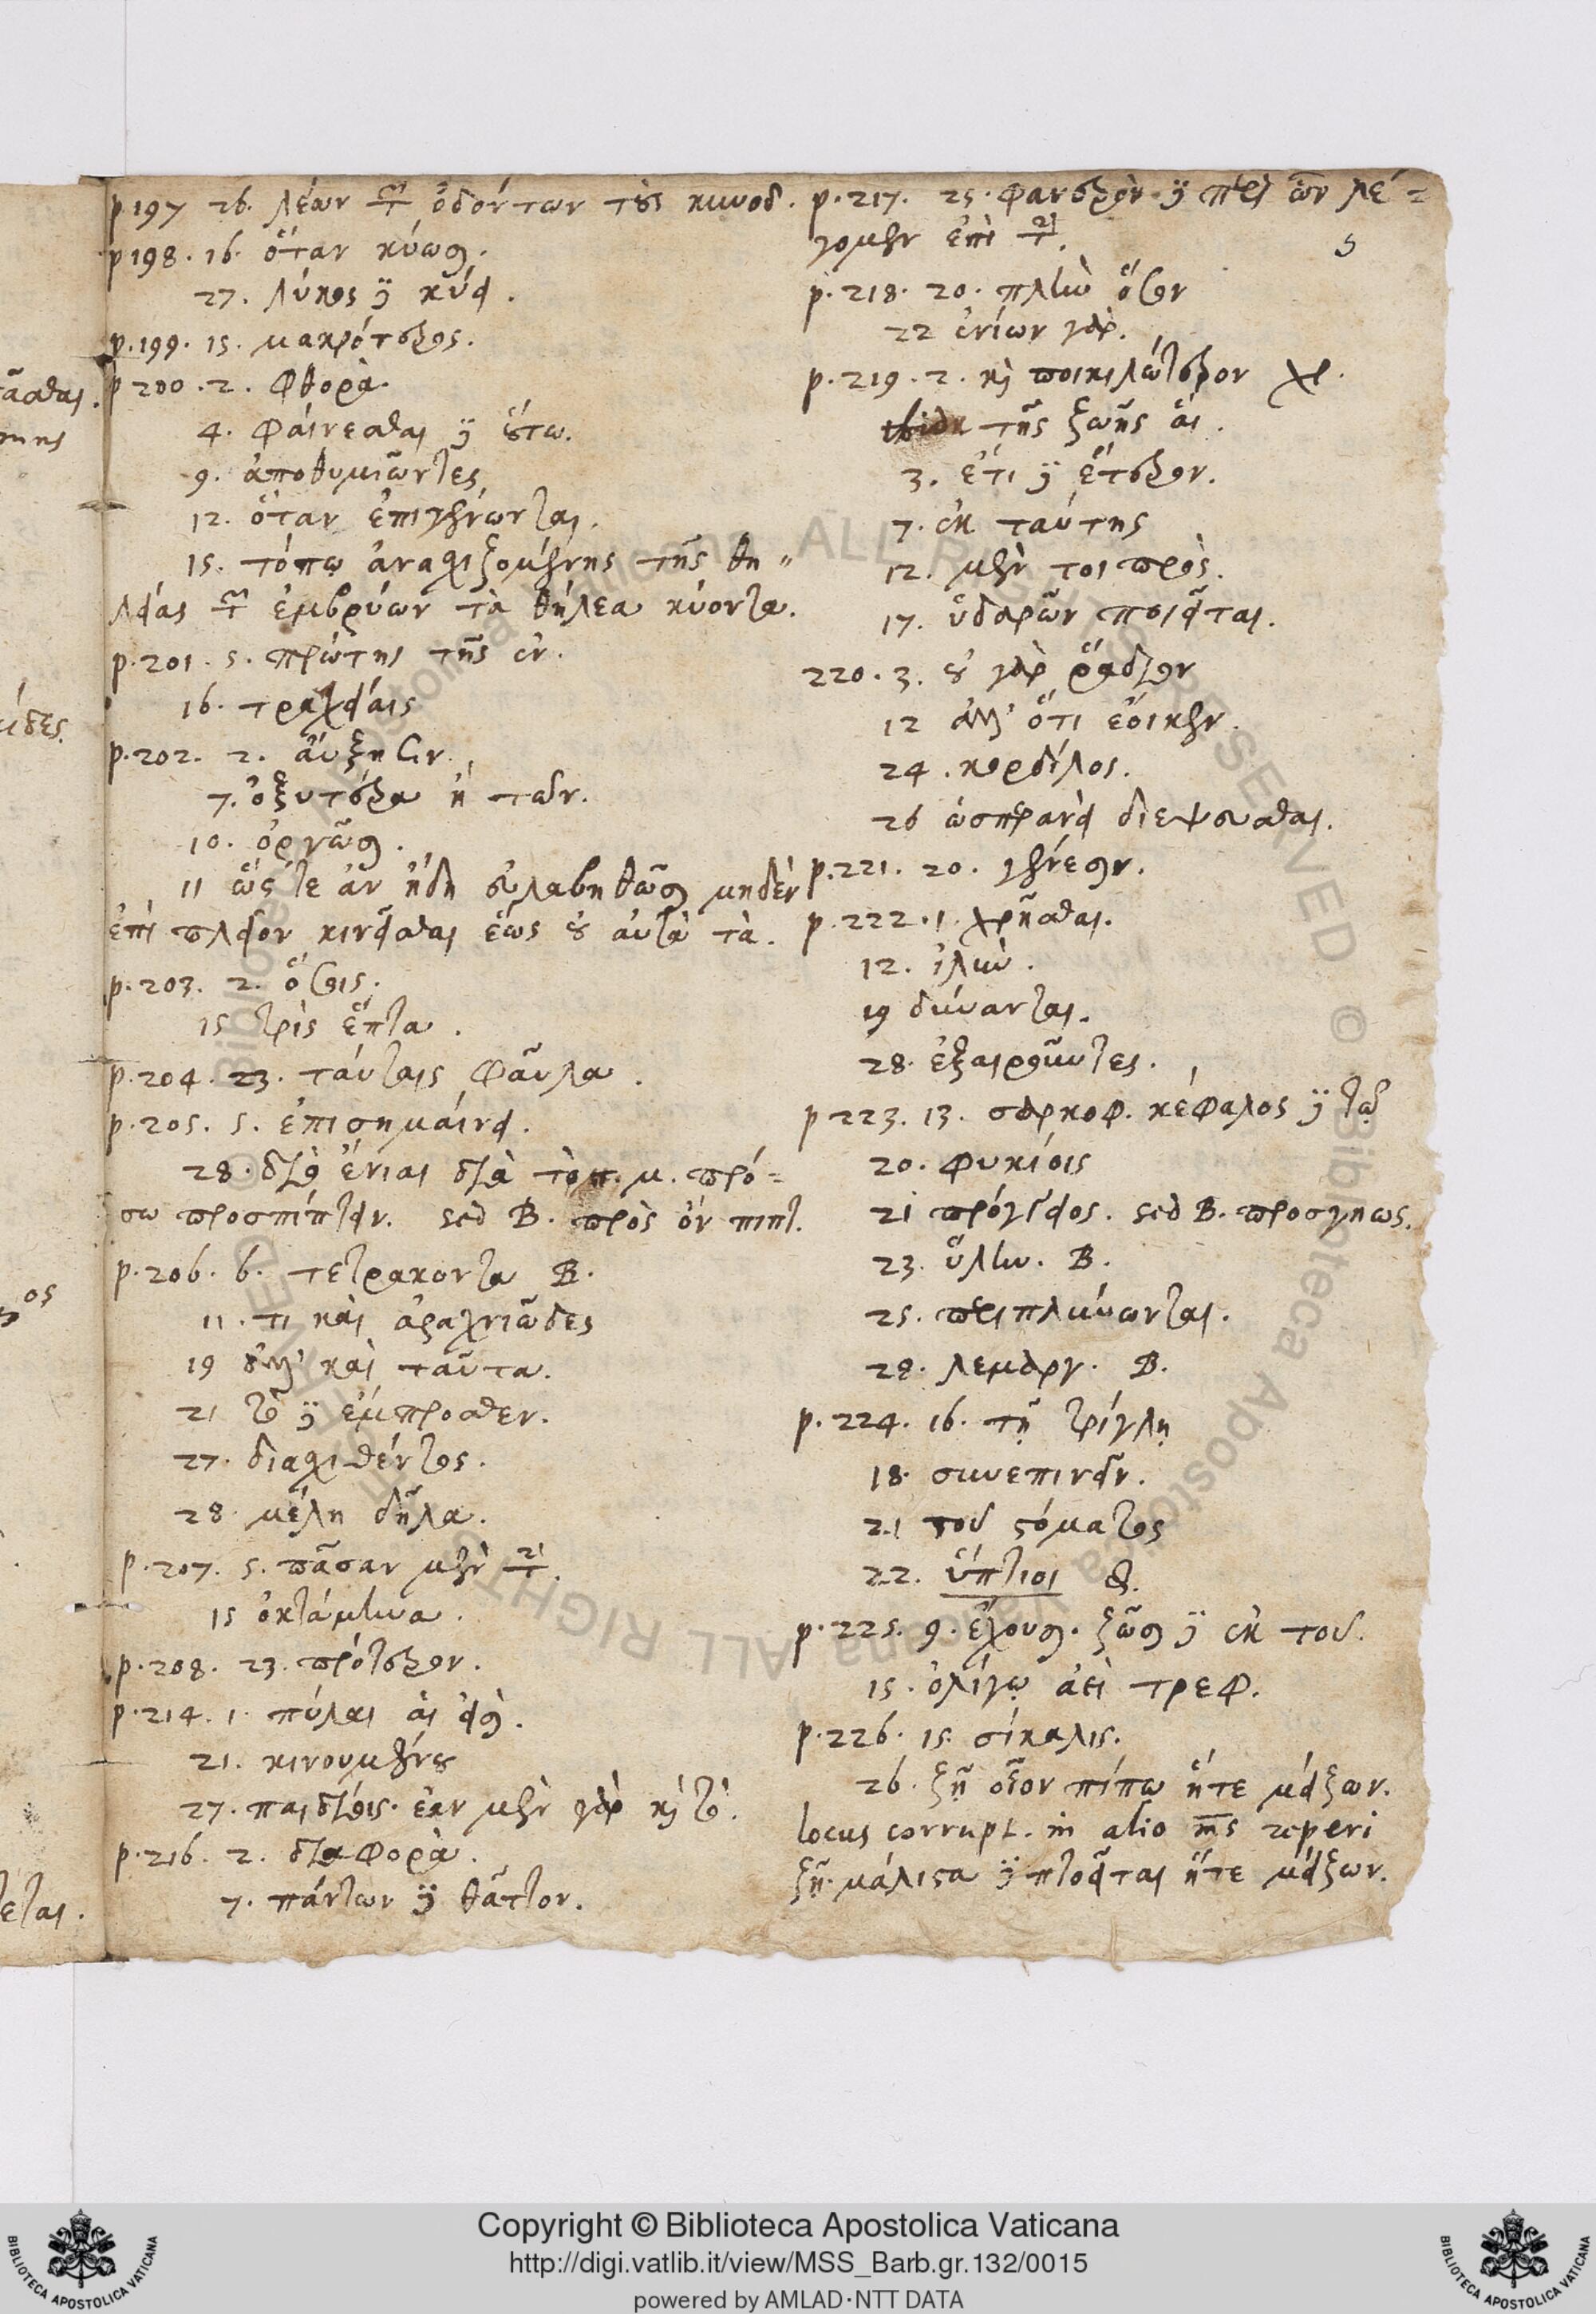 p. 197 26. λέων τ ὀδόντων τοὺς κυνοδ.
p 198. 16. ὅταν κύωσι.
27. λύκος δὲ κύει.
p. 199. 15. μακρότερος.
p 200. 2. φθορὰ.
4. φαίνεσθαι δὲ
9. ἀποθυμιῶντες
12. ὅταν ἐπιγένωνται.
15. τόπῳ ἀναχιζομένης τῆς θη〃
λείας τ ἐμβρύων τὰ θήλεα κύοντα.
p. 201. 5. πρώτης τῆς ἐν.
16. τραχείαις
p. 202. 2. αὔξησιν.
7. ὀξυτέρα ἢ
10. ὀργῶσι.
11 ὥστε ἂν ἤδη συλαβηθῶσι μηδὲν
ἐπὶ πλεῖον κινεῖσθαι ἕως οὗ αὐτὰ τὰ.
p. 203. 2. ὄψις.
15 τρὶς ἕπτα.
p. 204. 23. ταύταις φαῦλα.
p. 205. 5. ἐπισημαίνει.
28. διὸ ἔνιαι διὰ τὸ π. μ. πρό=
σω προσπίπτειν. sed B. πρὸς ὃν πιπτ.
p. 206. 6. τετρακοντα B.
11. τι καὶ ἀραχνιῶδες
19 ἀλλ' καὶ ταῦτα.
21 τοῦ δὲ ἔμπροσθεν.
27. διαχιθέντος.
28. μέλη δῆλα.
p. 207. 5. πᾶσαν μὲν τὴν.
15 ὀκτάμηνα.
p. 208. 23. πρότερον.
p. 214. 1. πύλαι αἱ εἰσὶ.
21. κινουμένου
27. παιδίοις. ἐὰν μὲν γὰρ καὶ τὸ.
p. 216. 2. διαφορὰ.
7. πάντων δὲ θᾶττον.
p. 217. 25. φανερὸν δὲ περὶ ὧν λέ=
γομεν ἐπὶ τὴν.
5
p. 218. 20. πλὴν ὅσον
22 ἐνίων γὰρ.
p. 219. 2. καὶ ποικιλώτερον χρ.
ibidem τῆς ζωῆς αἱ.
3. ἔτι δὲ ἕτερον.
7. ἐκ ταύτης
12. μέν τοι πρὸς.
17. ὑδαρῶν ποιεῖται.
220. 3. οὐ γὰρ ῥάδιον
12 ἀλλ' ὅτι ἔοικεν.
24. κορδίλος.
26 ὡσπερανεὶ διεψευσθαι.
p. 221. 20. γένεσιν.
p. 222. 1. χρῆσθαι.
12. ἰλὺν.
19 δύνανται.
28. ἐξαιροῦντες.
p 223. 13. σαρκοφ. κέφαλος δὲ
20. φυκίοις
21 πρόγειος. sed B. προσγηως.
23. ὕλην. B.
25. περιπλύνωνται.
28. λεμαργ. B.
p. 224. 16. τῇ τρίγλῃ
18. συνεπινεῖν.
21 τοῦ στόματος
22. ὕπτιοι δὲ.
p. 225. 9. ἔχουσι. ζῶσι δὲ ἐκ τοῦ.
15. ὀλίγῳ ἀεὶ τρεφ.
p. 226. 15. σίκαλις.
26. ζῇ οἷον πίπω ἥτε μείζων.
locus corrupt. in alio ms reperi
ζῇ. μάλιστα δὲ πτοεῖται ἥτε μείζων.
Copyright © Biblioteca Apostolica Vaticana
http://digi.vatlib.it/view/MSS_Barb.gr.132/0015
powered by AMLAD·NTT DATA